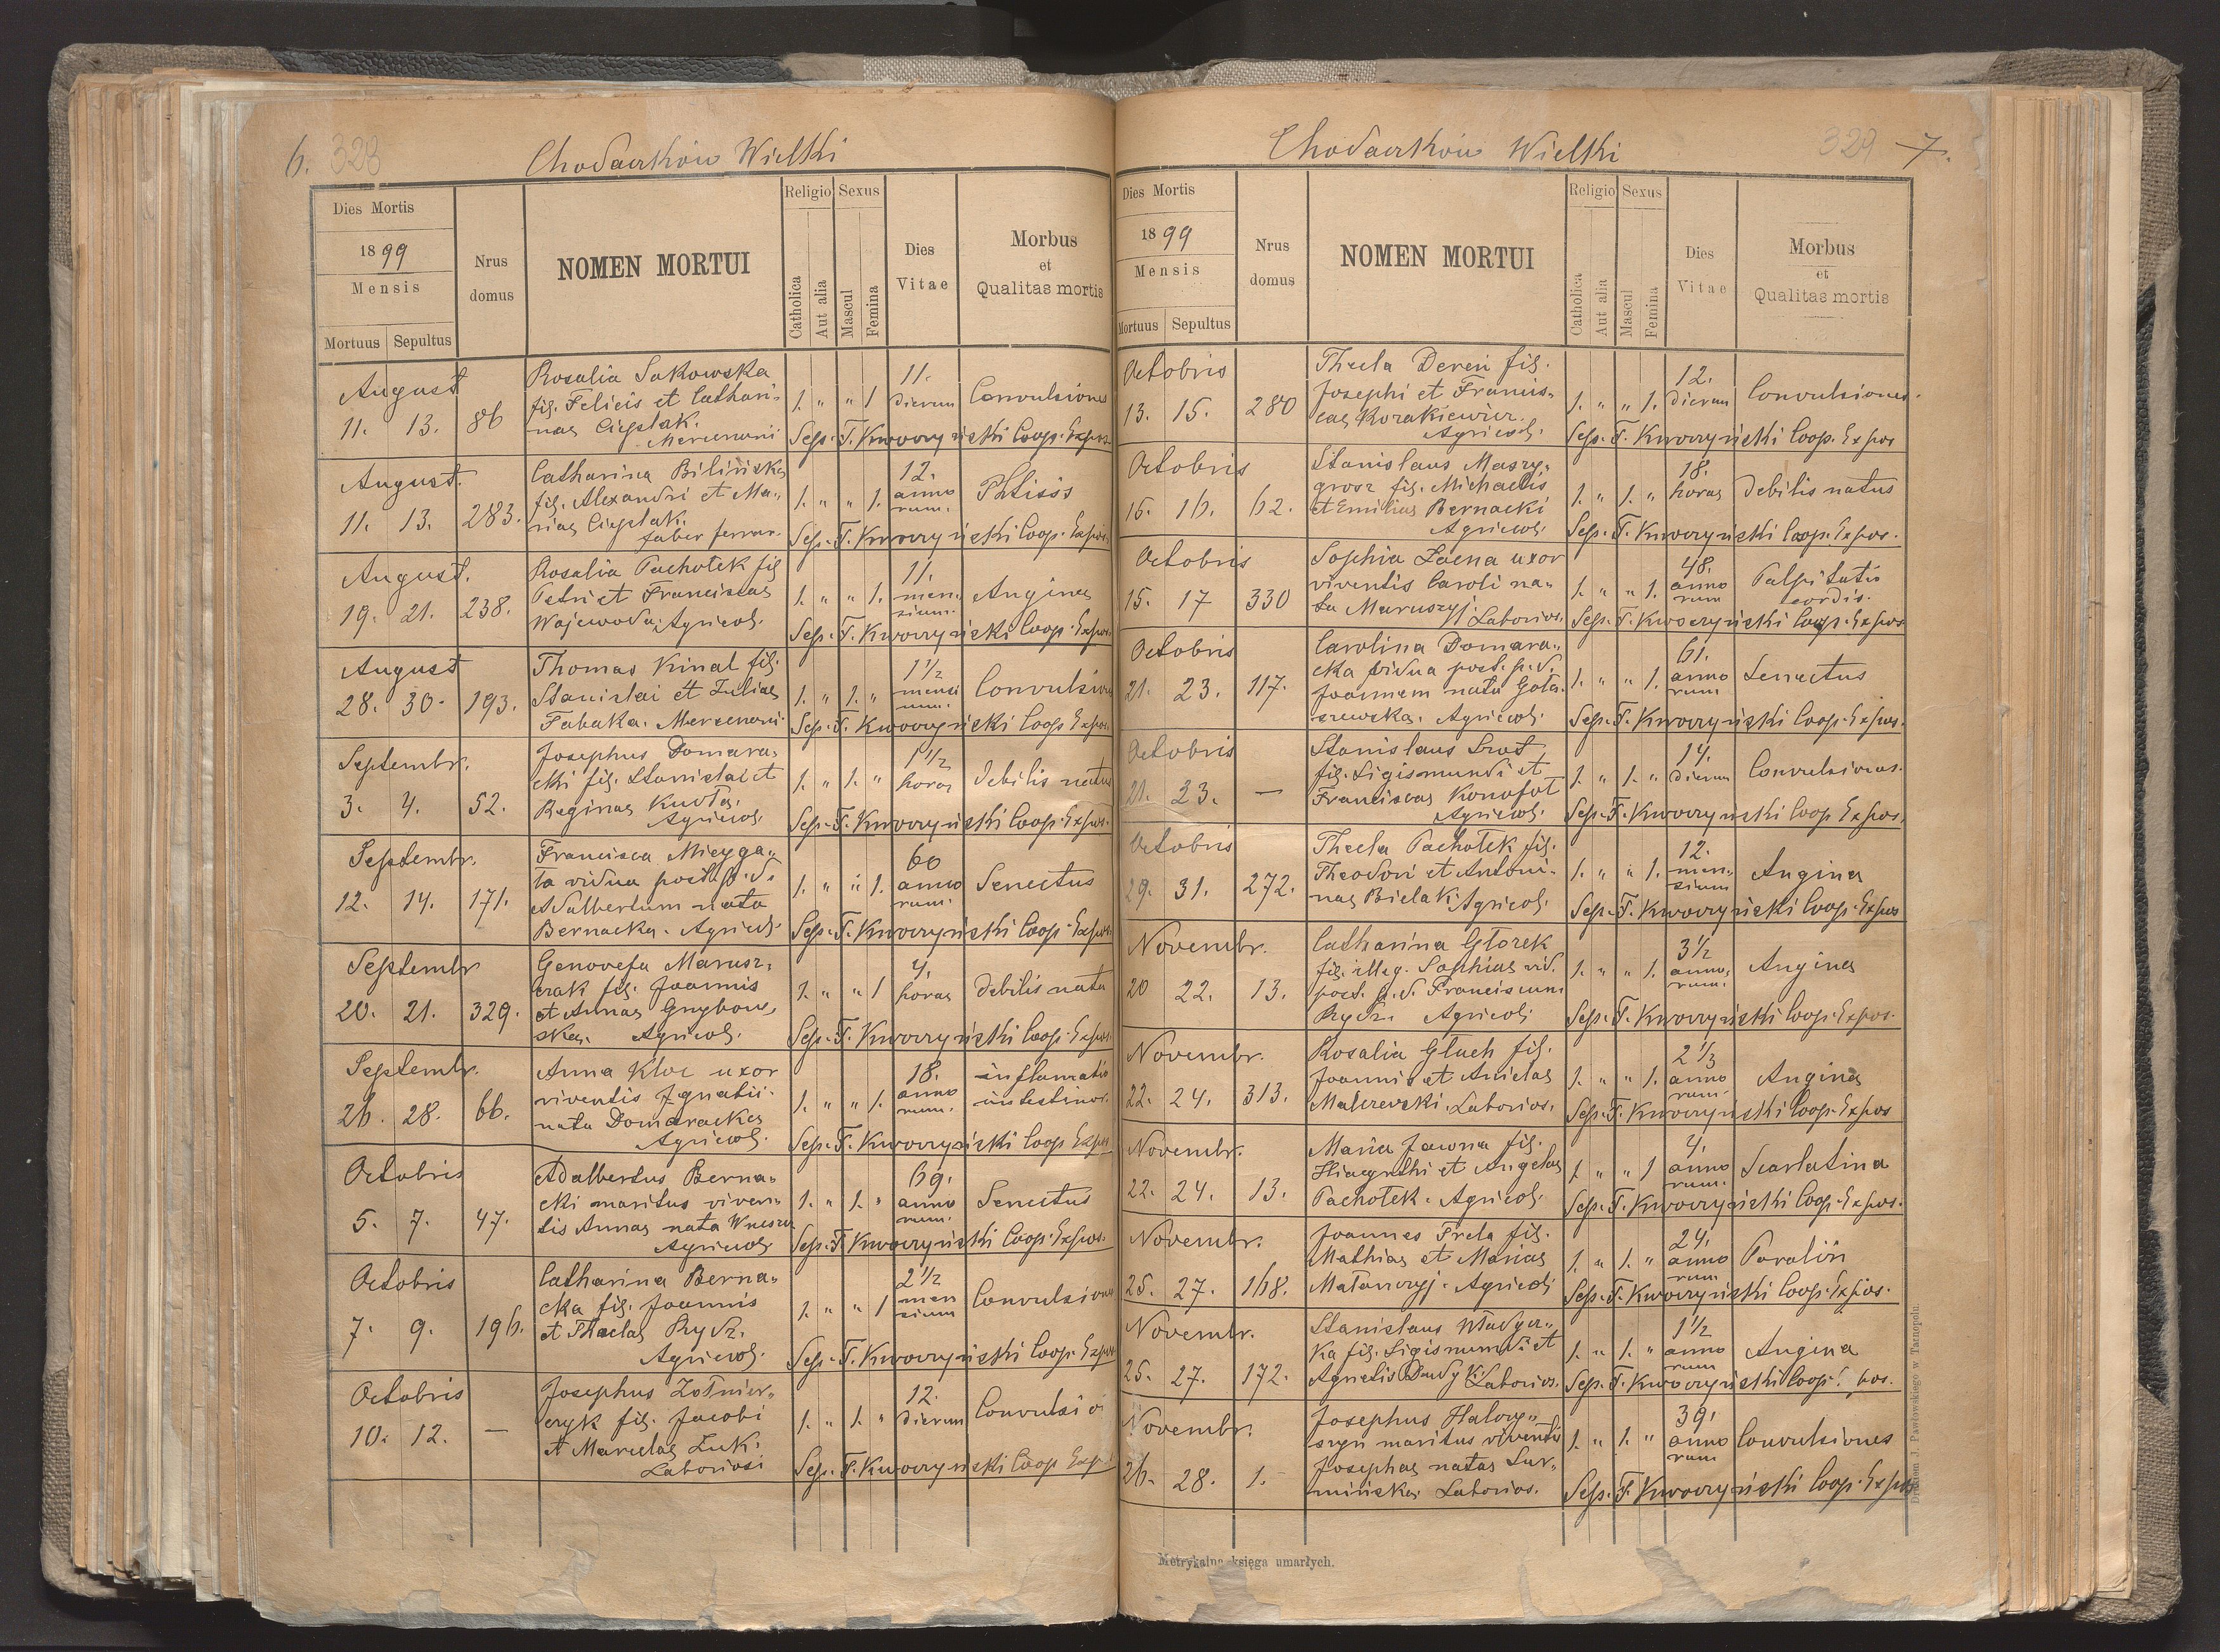 6. 328
Chodaczków Wielki
Dies Mortis
1899
Mensis
Mortuus Sepultus
Nrus domus
NOMEN MORTUI
Religio Sexus
Catholica
Aut alia
Mascul
Femina
Dies Vitae
Morbus
et
Qualitas mortis
August
11. 13. 86
Rosalia Sakowska
fil. Felicis et Cathari-
nae Cieplak.
Mercenarii
1. " " 1
11. dierum
Convulsiones
Sep. F. Kwoczyński Coop. Expos.
August.
11. 13. 283.
Catharina Bilińska
fil. Alexandri et Ma-
riae Cieplak.
faber ferrar.
1. " " 1.
12. anno
rum.
Phtisis
Sep. F. Kwoczyński Coop. Expos.
August.
19. 21. 238.
Rosalia Pachotek fil
Petri et Franciscae
Wojewoda. Agricol.
1. " " 1.
11. men-
sium.
Angina
Sep. F. Kwoczyński Coop. Expos.
August
28. 30. 193.
Thomas Kinal fil.
Stanislai et Juliae
Tabaka. Mercenarii
1. " 1. "
1½ mensi
um.
Convulsiones
Sep. F. Kwoczyński Coop Expos.
Septembr.
3. 4. 52.
Josephus Domara-
cki fil. Stanislai et
Reginae
Agricol.
1. " 1. "
1½ horas
debilis natus
Sep. F. Kwoczyński Coop. Expos.
Septembr.
12. 14. 171.
Francisca Miczga-
ta vidua post p. d.
Adalbertum nata
Bernacka. Agricol.
1. " " 1.
60 anno
rum.
Senectus
Sep. F. Kwoczyński Coop. Expos
Septembr
20. 21. 329.
Genovefa Marusz-
czak fil. Joannis
et Annae Gnybow-
ska. Agricol.
1. " " 1
4. horas
debilis nata
Sep. F. Kwoczyński Coop. Expos.
Septembr.
26. 28. 66.
Anna Kloc uxor
viventis Ignatii.
nata Domaracka
Agricol.
1. " " 1.
18. anno
rum.
inflamatio
intestinor.
Sep. F. Kwoczyński Coop Expos
Octobris
5. 7. 47.
Adalbertus Berna-
cki maritus viven-
tis Annae nata
Agricol.
1. " 1. "
69. anno
rum.
Senectus
Sep. F. Kwoczyński Coop. Expos.
Octobris
7. 9. 196.
Catharina Berna-
cka fil. Joannis
et Theclae Rydz.
Agricol.
1. " " 1
2½ men
sium
Convulsiones
Sep. F. Kwoczyński Coop. Expos
Octobris
10. 12. —
Josephus Żołnier-
czyk fil. Jacobi
et Marcelae Żuk.
Laboriosi
1. " 1. "
12. dierum
Convulsio
Sep. F. Kwoczyński Coop Expos
Chodaczków Wielki
329 7.
Dies Mortis
1899
Mensis
Mortuus Sepultus
Nrus domus
NOMEN MORTUI
Religio Sexus
Catholica
Aut alia
Mascul
Femina
Dies Vitae
Morbus
et
Qualitas mortis
Octobris
13. 15. 280
Thecla Dereń fil.
Josephi et Francis-
cae Korakiewicz.
Agricol.
1. " " 1.
12. dierum
Convulsiones.
Sep. F. Kwoczyński Coop. Expos
Octobris
15. 16. 62.
Stanislaus Maszy-
grosz fil. Michaelis
et Emiliae Bernacki
Agricol.
1. " 1. "
18. horas
debilis natus
Sep. F. Kwoczyński Coop. Expos.
Octobris
15. 17 330
Sophia Łaena uxor
viventis Caroli na-
ta Maruszyj. Laborios.
1. " " 1.
48. anno
rum
Palpitatio
cordis.
Sep. F. Kwoczyński Coop. Expos
Octobris
21. 23. 117.
Carolina Domara-
cka vidua post. p. d.
Joannem nata Gota-
szewska. Agricol.
1. " " 1.
61. anno
rum
Senectus
Sep. F. Kwoczyński Coop. Expos.
Octobris
21. 23. —
Stanislaus Srot
fil. Sigismundi et
Franciscae Konofot
Agricol.
1. " 1. "
14. dierum
Convulsiones.
Sep. F. Kwoczyński Coop Expos.
Octobris
29. 31. 272.
Thecla Pachotek fil.
Theodori et Antoni-
nae Bielak Agricol.
1. " " 1.
12. men-
sium
Angina
Sep. F. Kwoczyński Coop. Expos
Novembr.
20 22. 13.
Catharina Głorek
fil. illeg. Sophiae vid.
post. p. d. Franciscum
Rydz. Agricoli
1. " " 1.
3½ anno-
rum.
Angina
Sep. F. Kwoczyński Coop. Expos.
Novembr.
22. 24. 313.
Rosalia Głuch fil.
Joannis et Anielae
Malczewski. Laborios.
1. " " 1.
2⅓ anno
rum.
Angina
Sep. F. Kwoczyński Coop. Expos
Novembr.
22. 24. 13.
Maria Jawna fil.
Hiacynthi et Angelae
Pachotek. Agricol.
1 " " 1
4. anno
rum.
Scarlatina
Sep. F. Kwoczyński Coop. Expos.
Novembr.
25. 27. 168.
Joannes Freta fil.
Mathias et Mariae
Matanczyj. Agricoli
1. " 1. "
24. anno
rum
Paralis
Sep. F. Kwoczyński Coop. Expos.
Novembr.
25. 27. 172.
Stanislaus Władycz-
ka fil. Sigismundi et
Agnetis Dudyk. Laborios.
1. " 1. "
1½ anno
rum
Angina
Sep. F. Kwoczyński Coop. Expos.
Novembr.
26. 28. 1.
Josephus Hałczy-
szyn maritus viventis
Josephae natae Sur-
mińska Laborios.
1. " 1. "
39. anno
rum
Convulsiones
Sep. F. Kwoczyński Coop. Expos
Metrykalna księga umarłych.
Drukiem J. Pawłowskiego w Tarnopolu.